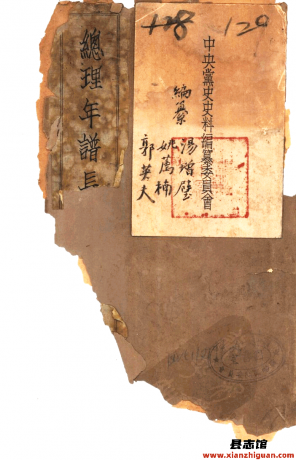 128 120
中央黨史史料編纂委員會
編纂
湯增璧
姚蔫楠
郭英夫
總理年譜長
县志馆
www.xianzhiguan.com